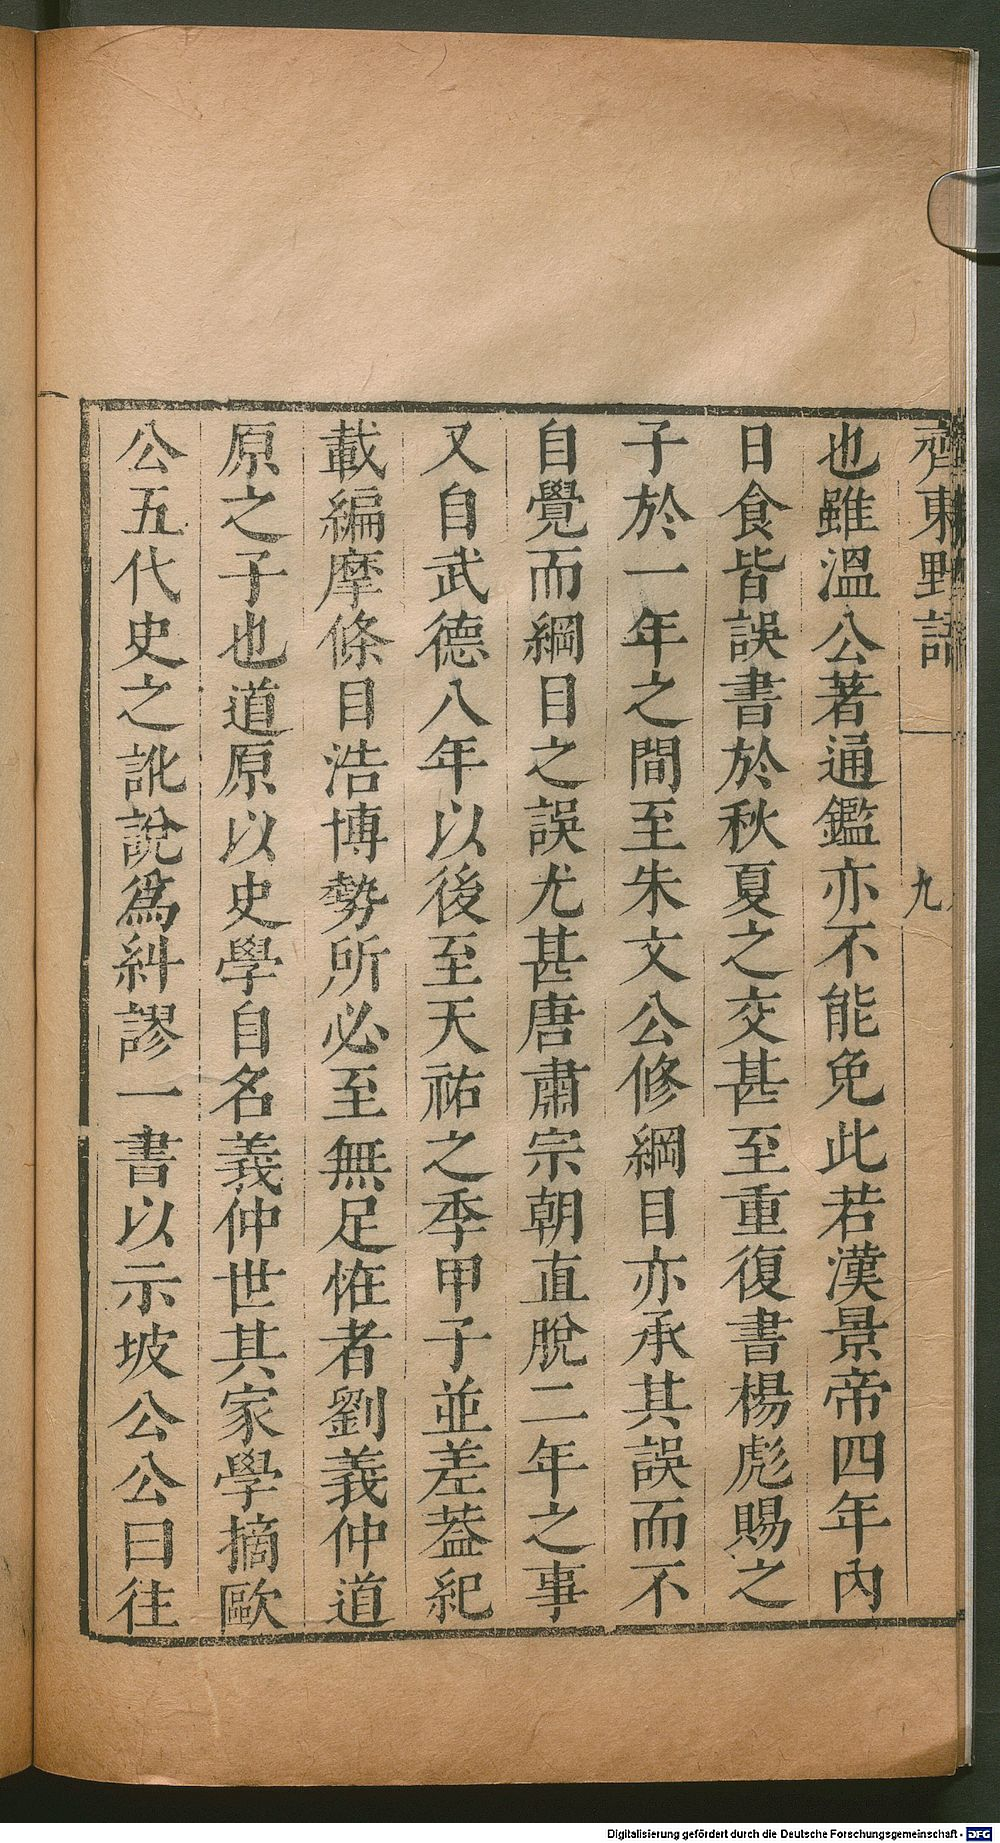 齊東野語
九
也雖溫公著通鑑亦不能免此若漢景帝四年內
日食皆誤書於秋夏之交甚至重復書楊彪賜之
子於一年之間至朱文公修綱目亦承其誤而不
自覺而綱目之誤尤甚唐肅宗朝直脫二年之事
又自武德八年以後至天祐之季甲子並差葢紀
載編摩條目浩博勢所必至無足恠者劉義仲道
原之子也道原以史學自名義仲世其家學摘歐
公五代史之訛說爲糾謬一書以示坡公公曰往
Digitalisierung gefördert durch die Deutsche Forschungsgemeinschaft - DFG